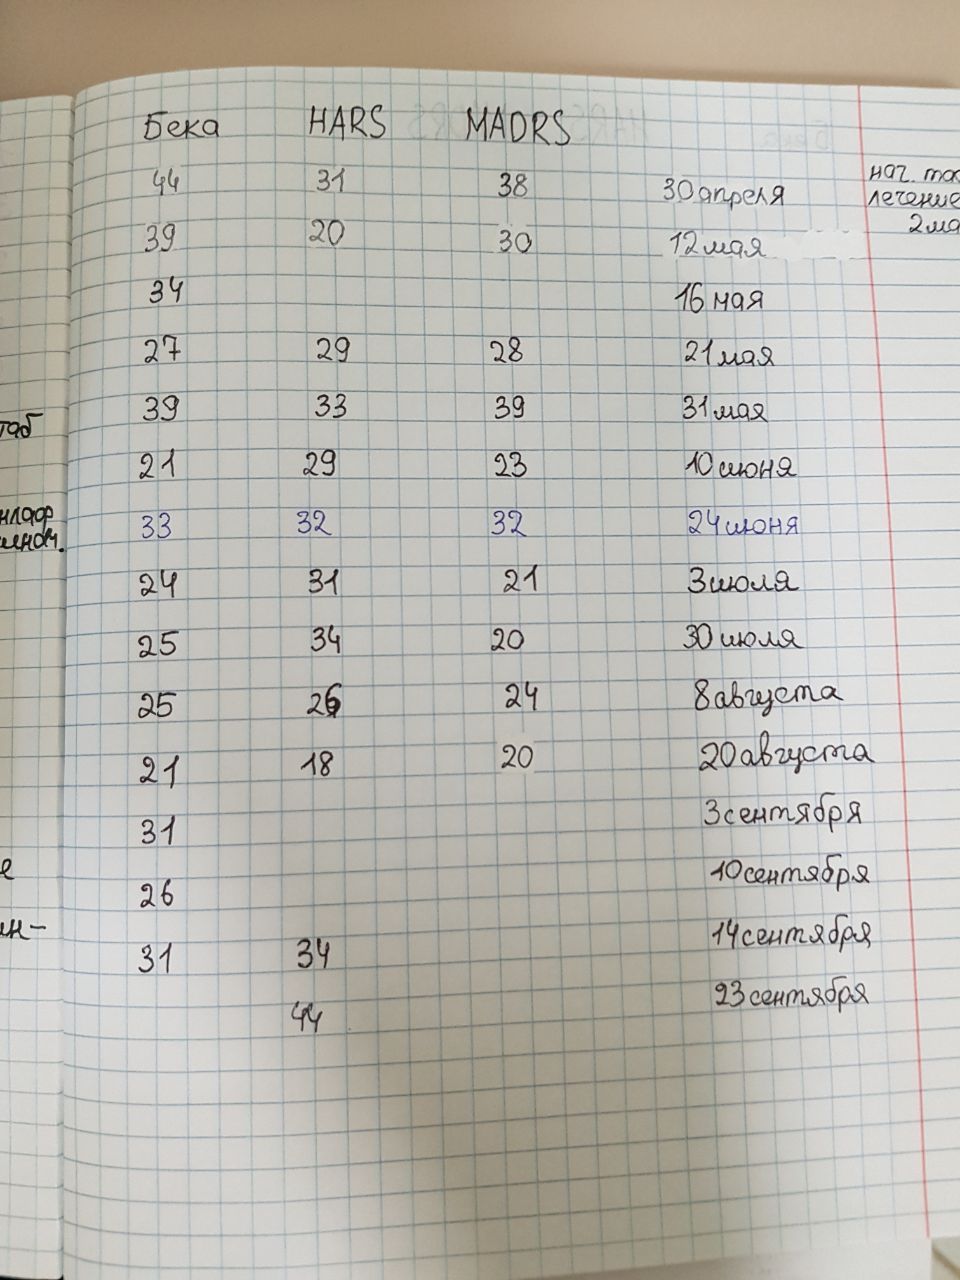 Бека HARS MADRS
44 31 38 30 апреля нач.
лечение
39 20 30 12 мая
34 16 мая
27 29 28 21 мая
39 33 39 31 мая
21 29 23 10 июня
33 32 32 24 июня
24 31 21 3 июля
25 34 20 30 июля
25 26 24 8 августа
21 18 20 20 августа
31 3 сентября
26 10 сентября
31 34 14 сентября
44 23 сентября